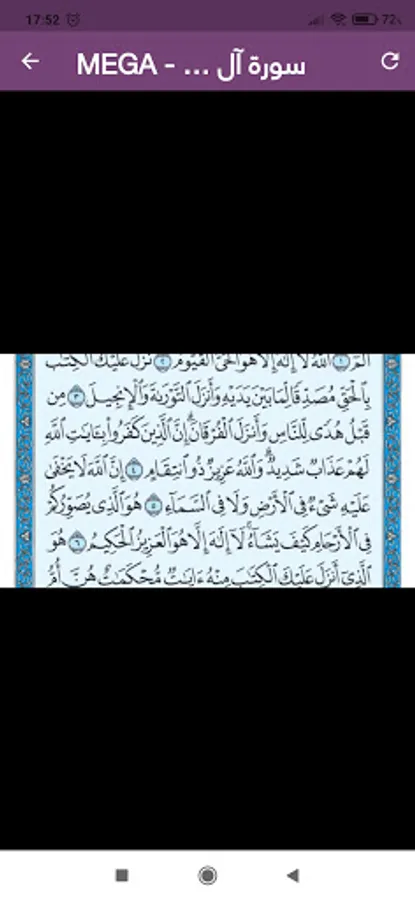 17:52
72%
سورة آل ... - MEGA
الٓمٓ ١ ٱللَّهُ لَآ إِلَٰهَ إِلَّا هُوَ ٱلْحَىُّ ٱلْقَيُّومُ ٢ نَزَّلَ عَلَيْكَ ٱلْكِتَٰبَ
بِٱلْحَقِّ مُصَدِّقًا لِّمَا بَيْنَ يَدَيْهِ وَأَنزَلَ ٱلتَّوْرَىٰةَ وَٱلْإِنجِيلَ ٣ مِن
قَبْلُ هُدًى لِّلنَّاسِ وَأَنزَلَ ٱلْفُرْقَانَ ۗ إِنَّ ٱلَّذِينَ كَفَرُوا۟ بِـَٔايَٰتِ ٱللَّهِ
لَهُمْ عَذَابٌ شَدِيدٌ ۗ وَٱللَّهُ عَزِيزٌ ذُو ٱنتِقَامٍ ٤ إِنَّ ٱللَّهَ لَا يَخْفَىٰ
عَلَيْهِ شَىْءٌ فِى ٱلْأَرْضِ وَلَا فِى ٱلسَّمَآءِ ٥ هُوَ ٱلَّذِى يُصَوِّرُكُمْ
فِى ٱلْأَرْحَامِ كَيْفَ يَشَآءُ ۚ لَآ إِلَٰهَ إِلَّا هُوَ ٱلْعَزِيزُ ٱلْحَكِيمُ ٦ هُوَ
ٱلَّذِىٓ أَنزَلَ عَلَيْكَ ٱلْكِتَٰبَ مِنْهُ ءَايَٰتٌ مُّحْكَمَٰتٌ هُنَّ أُمُّ